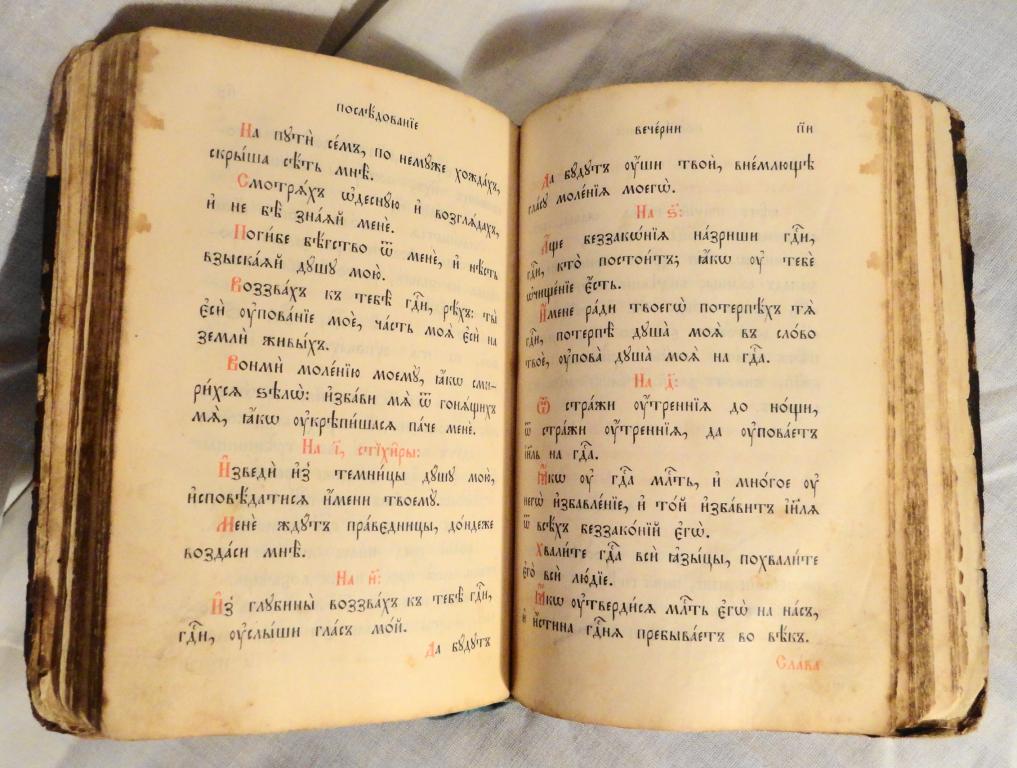 послѣ́дованїе
На пути́ се́мъ, по немꙋ́же хожда́хъ,
скры́ша сѣ́ть мнѣ̀.
Смотрѧ́хъ ѡ҆деснꙋ́ю и҆ возглѧ́дахъ,
и҆ не бѣ̀ зна́ѧй менѐ.
Поги́бе бѣ́гство ѿ менѐ, и҆ нѣ́сть
взыска́ѧй дꙋ́шꙋ мою̀.
Воззва́хъ къ тебѣ̀ гдⷭ҇и, рѣ́хъ: ты̀
є҆сѝ ᲂу҆пова́нїе моѐ, ча́сть моѧ̀ є҆сѝ на
землѝ живы́хъ.
Вонмѝ моле́нїю моемꙋ̀, ꙗ҆́кѡ сми-
ри́хсѧ ѕѣлѡ̀: и҆зба́ви мѧ̀ ѿ гонѧ́щихъ
мѧ̀, ꙗ҆́кѡ ᲂу҆крѣпи́шасѧ па́че менє̀.
На і҃, стїхи̑ры:
И҆зведѝ и҆з̾ темни́цы дꙋ́шꙋ мою̀,
и҆сповѣ́датисѧ и҆́мени твоемꙋ̀.
Менѐ ждꙋ́тъ првⷣницы, до́ндеже
возда́си мнѣ̀.
На и҃:
И҆з̾ глꙋбины̀ воззва́хъ къ тебѣ̀ гдⷭ҇и,
гдⷭ҇и, ᲂу҆слы́ши гла́съ мо́й.
Да бꙋ́дꙋтъ
вече́рни
п҃и
Да бꙋ́дꙋтъ ᲂу҆́ши твоѝ, вне́млющѣ
гла́сꙋ моле́нїѧ моегѡ̀.
На ѕ҃:
А҆́ще беззакѡ́нїѧ на́зриши гдⷭ҇и,
гдⷭ҇и, кто̀ постои́тъ; ꙗ҆́кѡ ᲂу҆ тебє̀
ѡ҆чище́нїе є҆́сть.
И҆́мене ра́ди твоегѡ̀ потерпѣ́хъ тѧ̀
гдⷭ҇и, потерпѣ̀ дꙋша̀ моѧ̀ въ сло́во
твоѐ, ᲂу҆пова̀ дꙋша̀ моѧ̀ на гдⷭ҇а.
На д҃:
Ѿ стра́жи ᲂу҆́треннїѧ до но́щи,
ѿ стра́жи ᲂу҆́треннїѧ, да ᲂу҆пова́етъ
і҆и҃ль на гдⷭ҇а.
Ꙗ҆́кѡ ᲂу҆ гдⷭ҇а млⷭ҇ть, и҆ мно́гое ᲂу҆
негѡ̀ и҆збавле́нїе, и҆ то́й и҆зба́витъ і҆и҃лѧ
ѿ всѣ́хъ беззако́нїй є҆гѡ̀.
Хвали́те гдⷭ҇а всѝ ꙗ҆зы́цы, похвали́те
є҆го̀ всѝ лю́дїе.
Ꙗ҆́кѡ ᲂу҆тверди́сѧ млⷭ҇ть є҆гѡ̀ на на́съ,
и҆ и҆́стина гдⷭ҇нѧ пребыва́етъ во вѣ́къ.
Сла́ва